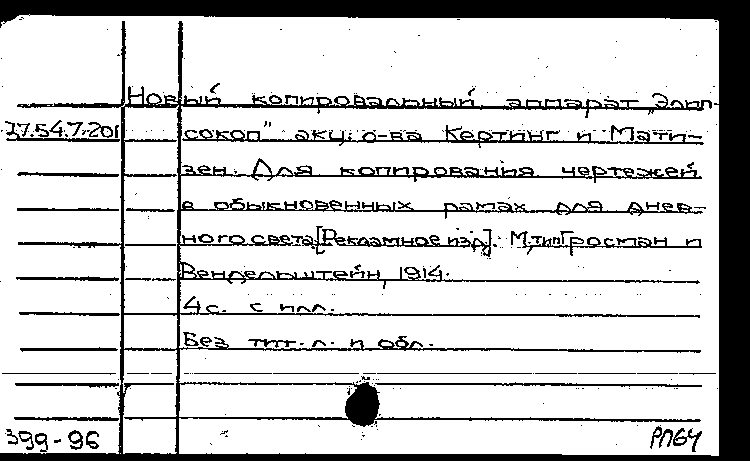 Новый копировальный аппарат „Элип-
17.54.7.201 сокоп" акц. о-ва Кертинг и Мати-
зен. Для копирования чертежей
в обыкновенных рамах для днев-
ного света. [Рекламное изд.]. М., тип. Гросман и
Вендельштейн, 1914.
4 с. с илл.
Без тит. л. и обл.
399-96 РПБЧ